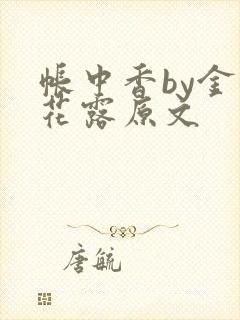 帐中香by金
花露原文
唐毓